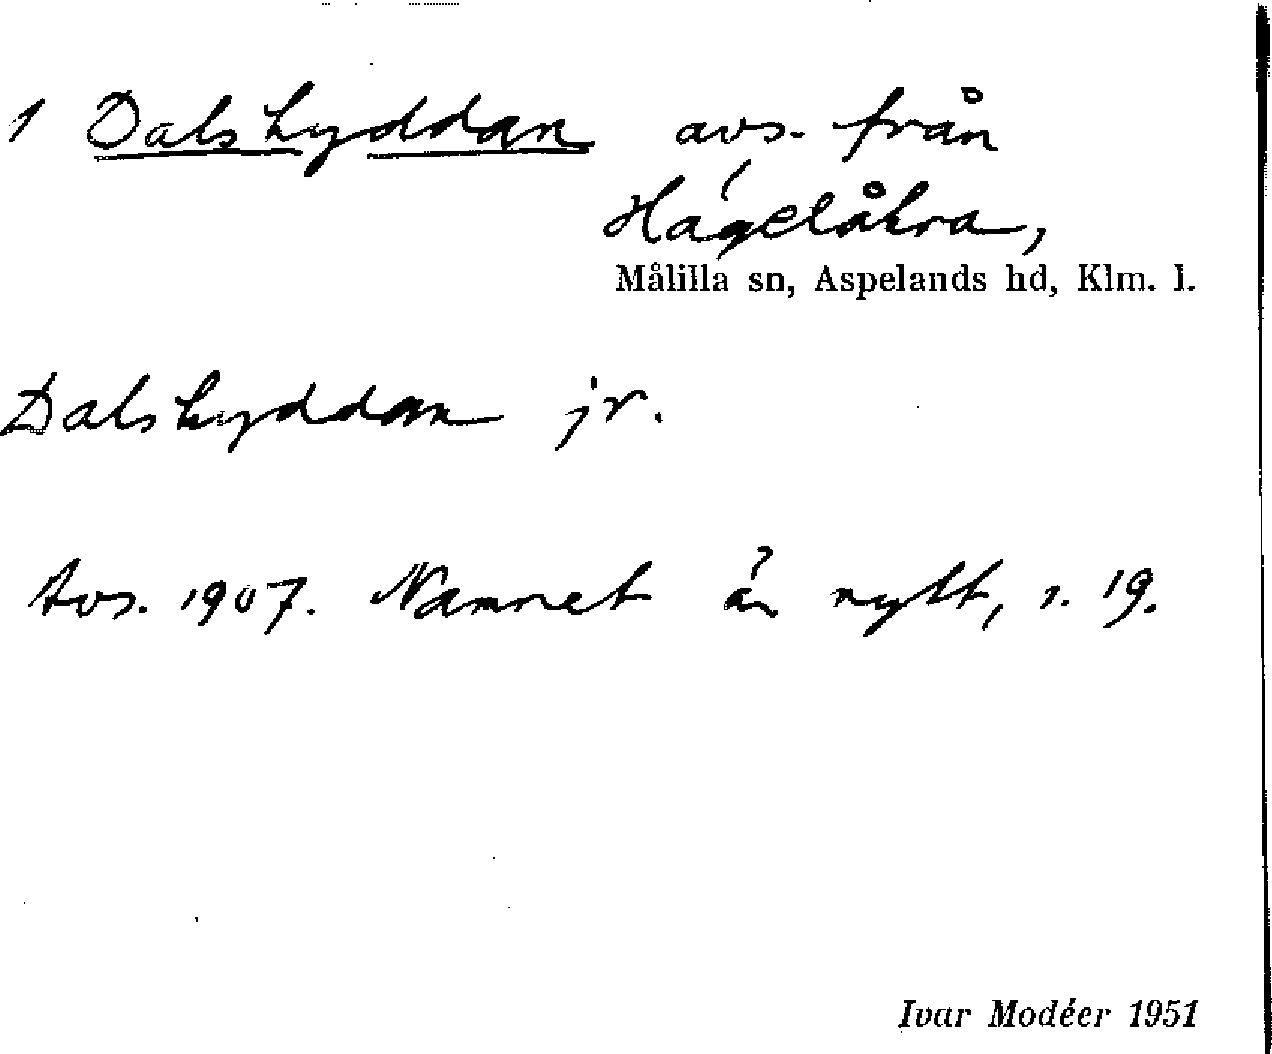 1 Dalskyddan avs. från
Hägelåkra,
Målilla sn, Aspelands hd, Klm. l.
Dalskyddan jr.
Avs. 1907. Namnet är nytt, s. 19.
Ivar Modéer 1951